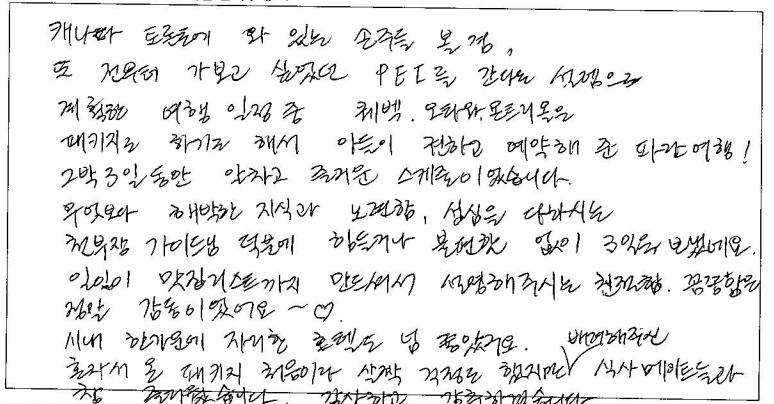 캐나다 토론토에 와 있는 손주들 볼 겸,
또 전부터 가보고 싶었던 PEI를 간다는 설렘으로
계획한 여행 일정 중 퀘벡. 오타와. 몬트리올은
패키지로 하기로 해서 아들이 전하고 예약해 준 파란여행!
2박 3일동안 알차고 즐거운 스케줄이었습니다.
무엇보다 해박한 지식과 노련함, 성심을 다하시는
천부장 가이드님 덕분에 힘든거나 불편함 없이 3일을 보냈네요.
일일이 맛집리스트까지 만드셔서 설명해주시는 친절함. 꼼꼼함은
정말 감동이었어요 ~♡.
시내 한가운데 자리한 호텔도 넘 좋았구요. 배려해주신
혼자서 온 패키지 처음이라 살짝 걱정도 했지만 식사메이트들과
참 즐거웠습니다. 감사하고